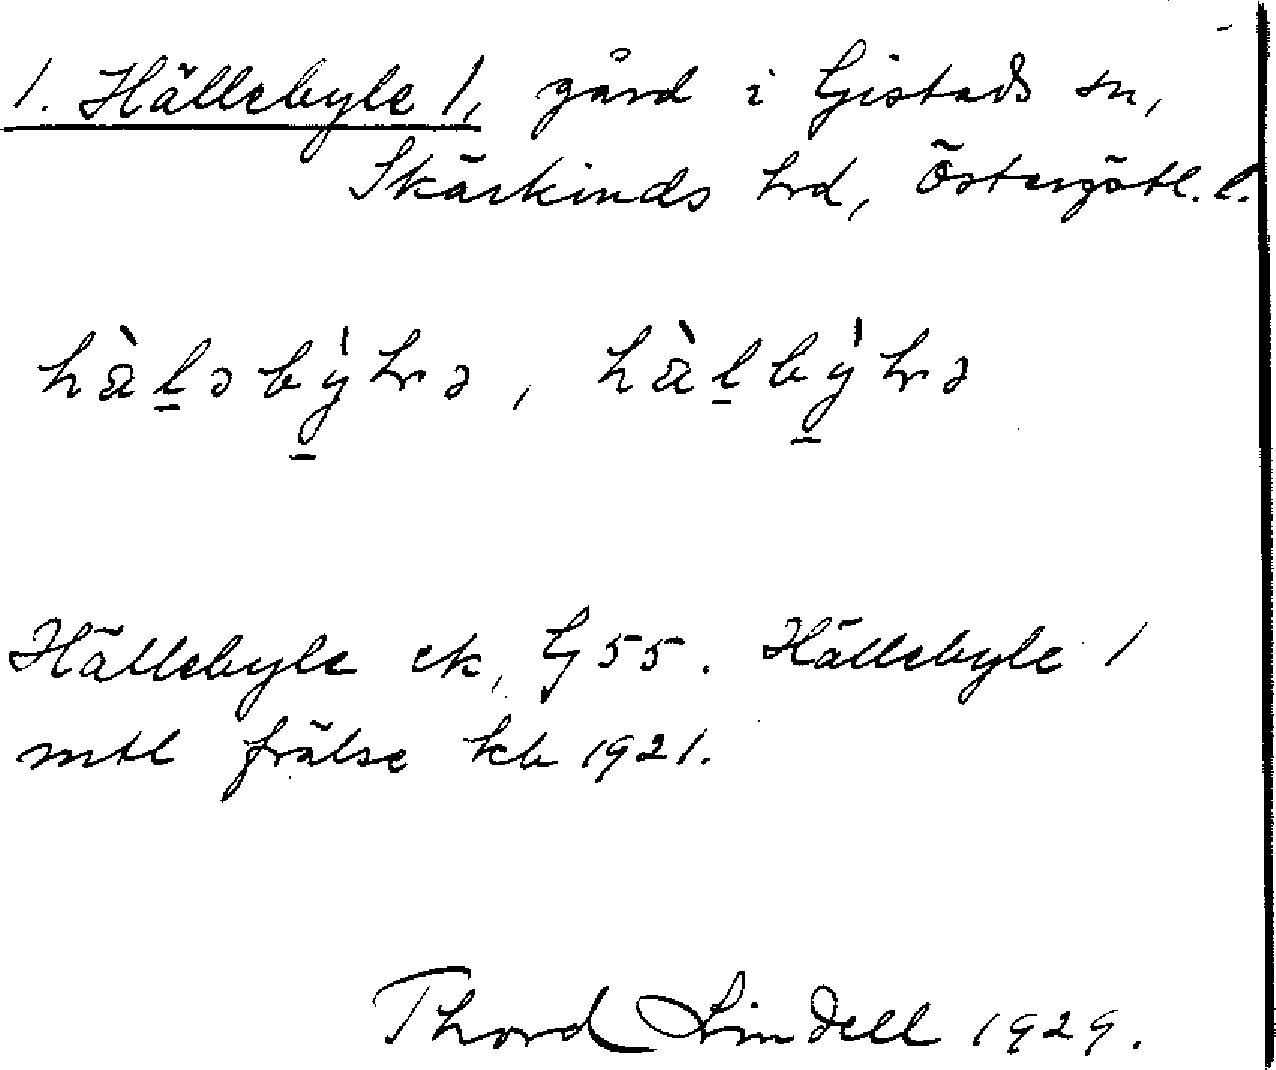 1. Hällebyle 1, gård i Gistads sn,
Skärkinds hrd, Östergötl. l.
Hällebyle ek, G 55. Hällebyle 1
mtl frälse kb 1921.
Thord Lindell 1929.